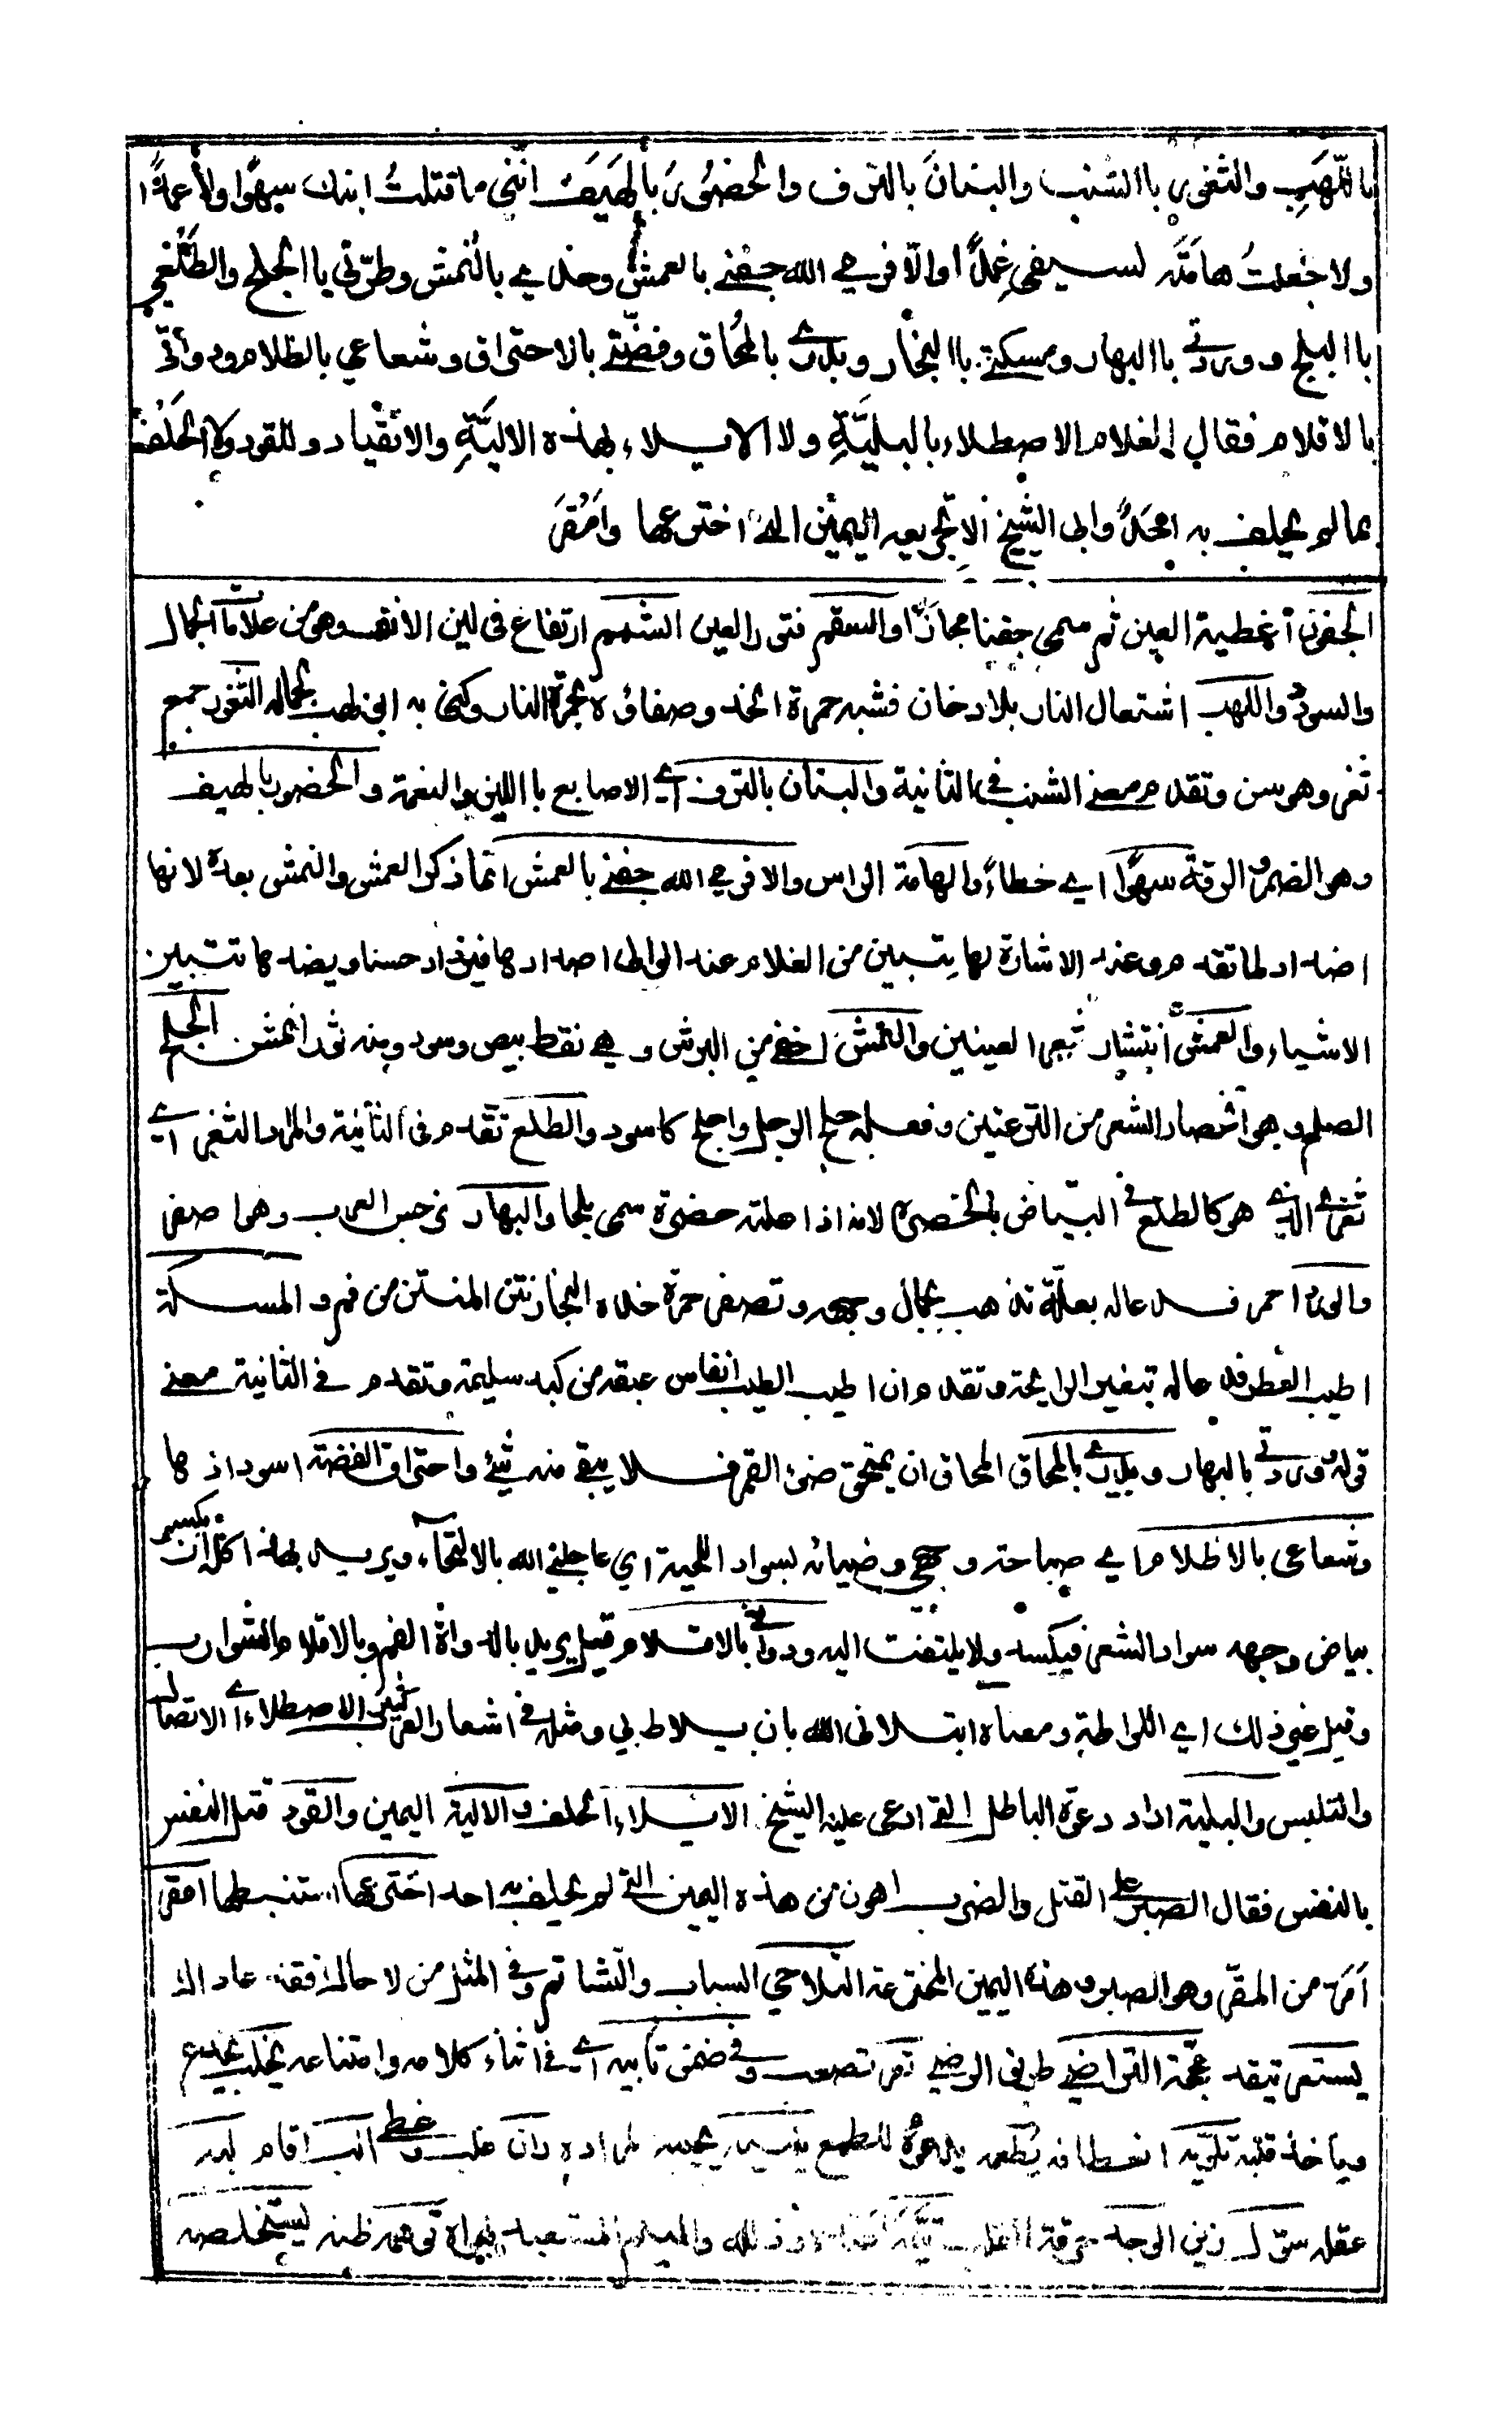 باللّهَبِ والثغوى باالشنب والبنانَ بالترف والخضوىَ بالهَيَف انّنى ماقتلتُ ابنك سهوًا ولاعمدًا
ولا جعلتُ هامَتَه لسيفى غمدًا والّا فرمى الله جفنى بالعمش وخدى بالنمش وطرّتى باالجلح والطَلْعى
باالبلج ووردتى باالبهار ومسكتى باالبخار وبدرى بالمُحاق وفضّتى بالاحتراق وشعاعى بالظلام ودواتى
بالاقلام فقال الغلام الاصطلاء بالبليّةِ ولا الايلاء بهذه الاليَّةِ والانقياد وللقود ولا الحَلْف
بما لم يحلف به احدٌ وابى الشيخ الا تجريعه اليمين التى اخترعها وامْقَرَ
الجفون اغطية العين ثم سمى جفنا مجازًا والسقم فتور العين الشمم ارتفاع فى لين الانف وهو من علامات الجمال
واللهب اشتعال النار بلا دخان فشبه حمرة الخد وصفاؤه بحمرة النار وكنى به ابى لهب لجماله الثغور جمع
ثغر وهو سن وتقدم معنى الشنب فى الثانية والبنان بالترف اى الاصابع باللين والنعمة والخصور بالهيف
وهو الضمر والرقة سهوًا اى خطاءً والهامة الراس والا فرمى الله جفنى بالعمش انما ذكر العمش والنمش بعده لانها
اضداد لما تقدم وعند الاشارة لها يتبين من الغلام عند الوالى اضدادها فيزداد حسنا وبضدها تتبين
الاشياء والعمش انتشار العينين والنمش اخفى من البرش وهى نقط بيض وسود ومنه ثور انمش الجلح
الصلع وهو انحصار الشعر من النزعتين وفعله جلح الرجل واجلح كاسود والطلع تقدم فى الثانية والمراد الثغر اى
ثغرى الذى هو كالطلع فى البياض بالخضرة لانه اذا علته خضرة سمى بلحا والبهار نرجس العرب وهو اصفر
والورد احمر فدعا له بعلّة تذهب بجمال وجهه وتصفر حمرة خده البخار نتن المنتن من فم والمسكة
اطيب العطر فدعا له بتغير الرايحة وتقدم ان اطيب الطيب انفاس عبقه من كبد سليمة وتقدم فى الثانية معنى
قوله وردتى بالبهار وبدرى بالمحاق المحاق ان يمتحق ضوء القمر فلا يبقى منه شئ واحتراق الفضة اسودادها
وشعاعى بالاظلام اى صباحته وضيائه بسواد اللحية اى عاجلنى الله بالالتحاء ويريد بهذا كله ان يكسر
بياض وجهه سواد الشعر فيكسد ولا يلتفت اليه ودواتى بالاقلام قيل يريد بالدواة الفم وبالاقلام الشوارب
وقيل غير ذلك اى اللواطة ومعناه ابتلانى الله بان يلاط بى ومثله فى اشعار العرب كثير الاصطلاء اى الاتصال
والتلبس والبلية اراد دعوة الباطل التى ادعى عليه الشيخ الايلاء الحلف والالية اليمين والقود قتل النفس
بالنفس فقال الصبر على القتل والضرب اهون من هذه اليمين التى لم يحلف به احد اخترعها استنبطها امقر
أمَرّ من المقر وهو الصبر هذه اليمين المخترعة التلاحى السباب والتشاتم وفى المثل من لاحاك فقد عاداك
يستعر تتقد محجة التراضى طريق الرضى تعر تصعب وفى ضمن تابيه اى فى اثناء كلامه وامتناعه يخلب يخدع
وياخذ قلبه تلويه انعطافه يُطمعه يدعوه للطمع يجيبه لمراده ران غلب وغطى الب اقام لبه
عقله سوّل زين الوجد حرقة القلب تيّمه والمتيم المستعبد توهمه ظنه يستخلصه